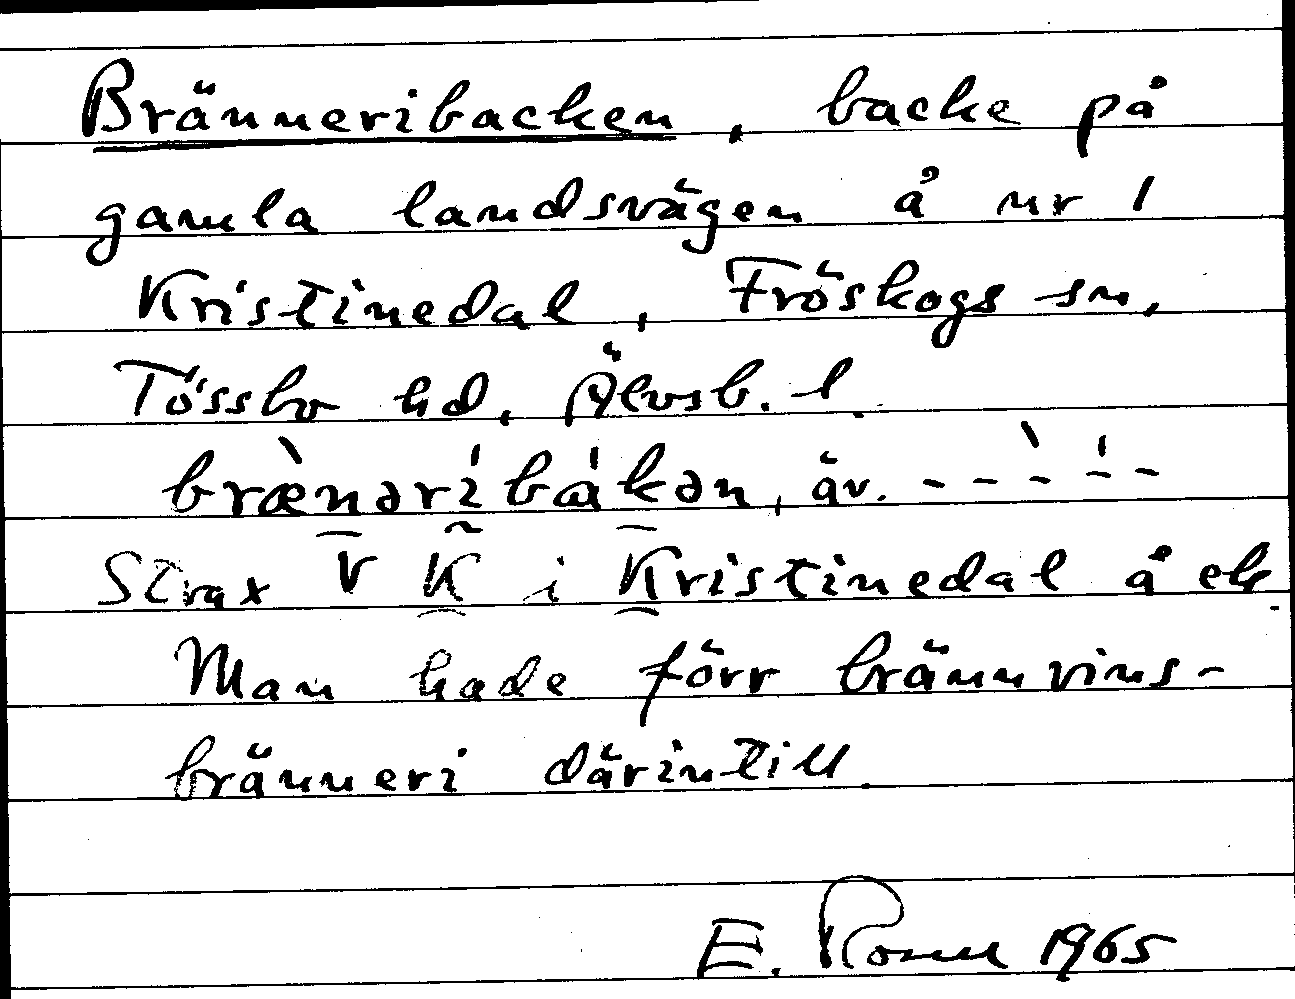 Bränneribacken, backe på
gamla landsvägen å nr 1
Kristinedal, Fröskogs sn,
Tössbo hd, Älvsb. l.
brænəribakən, äv. - - - - -
Strax V K i Kristinedal å ek.
Man hade förr brännvins-
bränneri därintill.
E. Rosell 1965